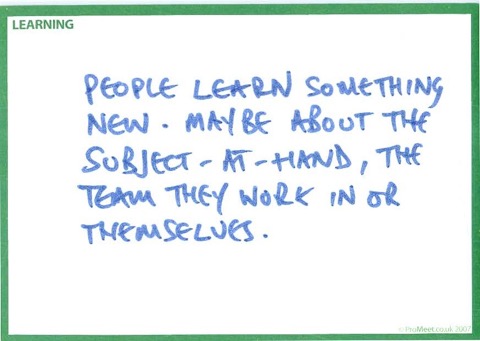 LEARNING
PEOPLE LEARN SOMETHING
NEW. MAYBE ABOUT THE
SUBJECT-AT-HAND, THE
TEAM THEY WORK IN OR
THEMSELVES.
© ProMeet.co.uk 2007